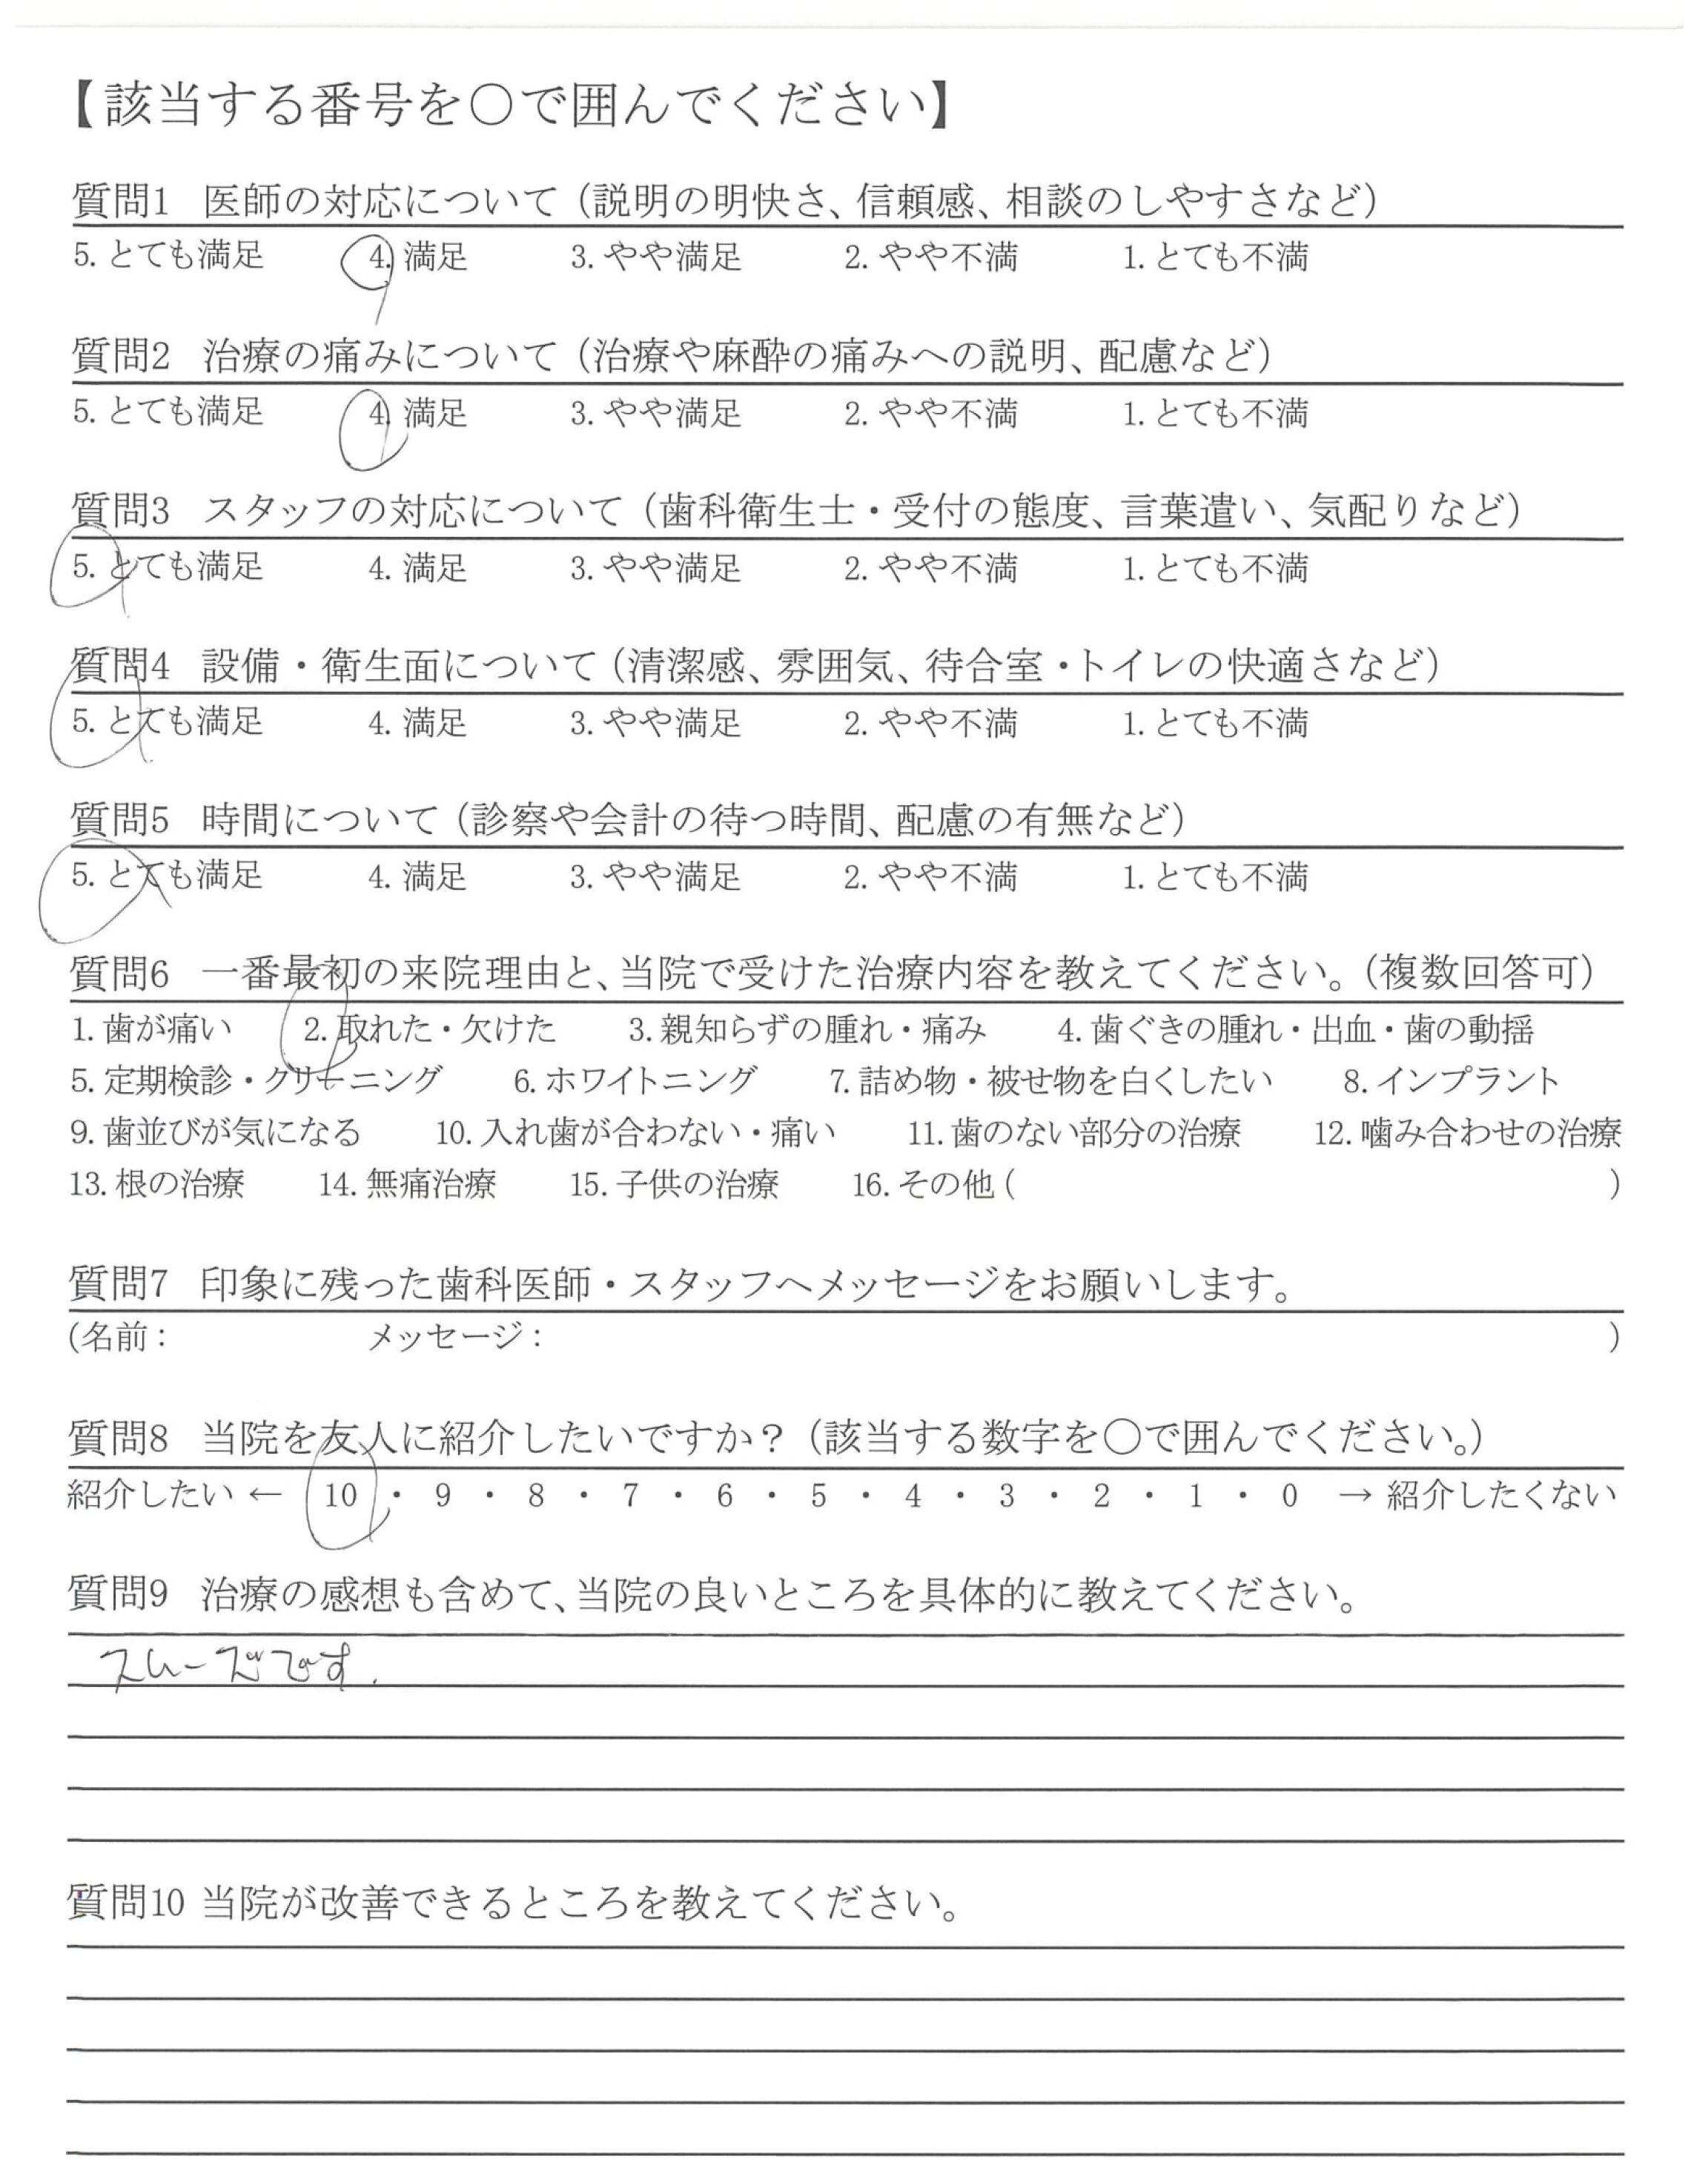 【該当する番号を○で囲んでください】
質問1 医師の対応について（説明の明快さ、信頼感、相談のしやすさなど）
5. とても満足 4. 満足 3. やや満足 2. やや不満 1. とても不満
質問2 治療の痛みについて（治療や麻酔の痛みへの説明、配慮など）
5. とても満足 4. 満足 3. やや満足 2. やや不満 1. とても不満
質問3 スタッフの対応について（歯科衛生士・受付の態度、言葉遣い、気配りなど）
5. とても満足 4. 満足 3. やや満足 2. やや不満 1. とても不満
質問4 設備・衛生面について（清潔感、雰囲気、待合室・トイレの快適さなど）
5. とても満足 4. 満足 3. やや満足 2. やや不満 1. とても不満
質問5 時間について（診察や会計の待つ時間、配慮の有無など）
5. とても満足 4. 満足 3. やや満足 2. やや不満 1. とても不満
質問6 一番最初の来院理由と、当院で受けた治療内容を教えてください。（複数回答可）
1. 歯が痛い 2. 取れた・欠けた 3. 親知らずの腫れ・痛み 4. 歯ぐきの腫れ・出血・歯の動揺
5. 定期検診・クリーニング 6. ホワイトニング 7. 詰め物・被せ物を白くしたい 8. インプラント
9. 歯並びが気になる 10. 入れ歯が合わない・痛い 11. 歯のない部分の治療 12. 噛み合わせの治療
13. 根の治療 14. 無痛治療 15. 子供の治療 16. その他（ ）
質問7 印象に残った歯科医師・スタッフへメッセージをお願いします。
（名前： メッセージ： ）
質問8 当院を友人に紹介したいですか？（該当する数字を○で囲んでください。）
紹介したい ← 10 ・ 9 ・ 8 ・ 7 ・ 6 ・ 5 ・ 4 ・ 3 ・ 2 ・ 1 ・ 0 → 紹介したくない
質問9 治療の感想も含めて、当院の良いところを具体的に教えてください。
スムーズです.
質問10 当院が改善できるところを教えてください。